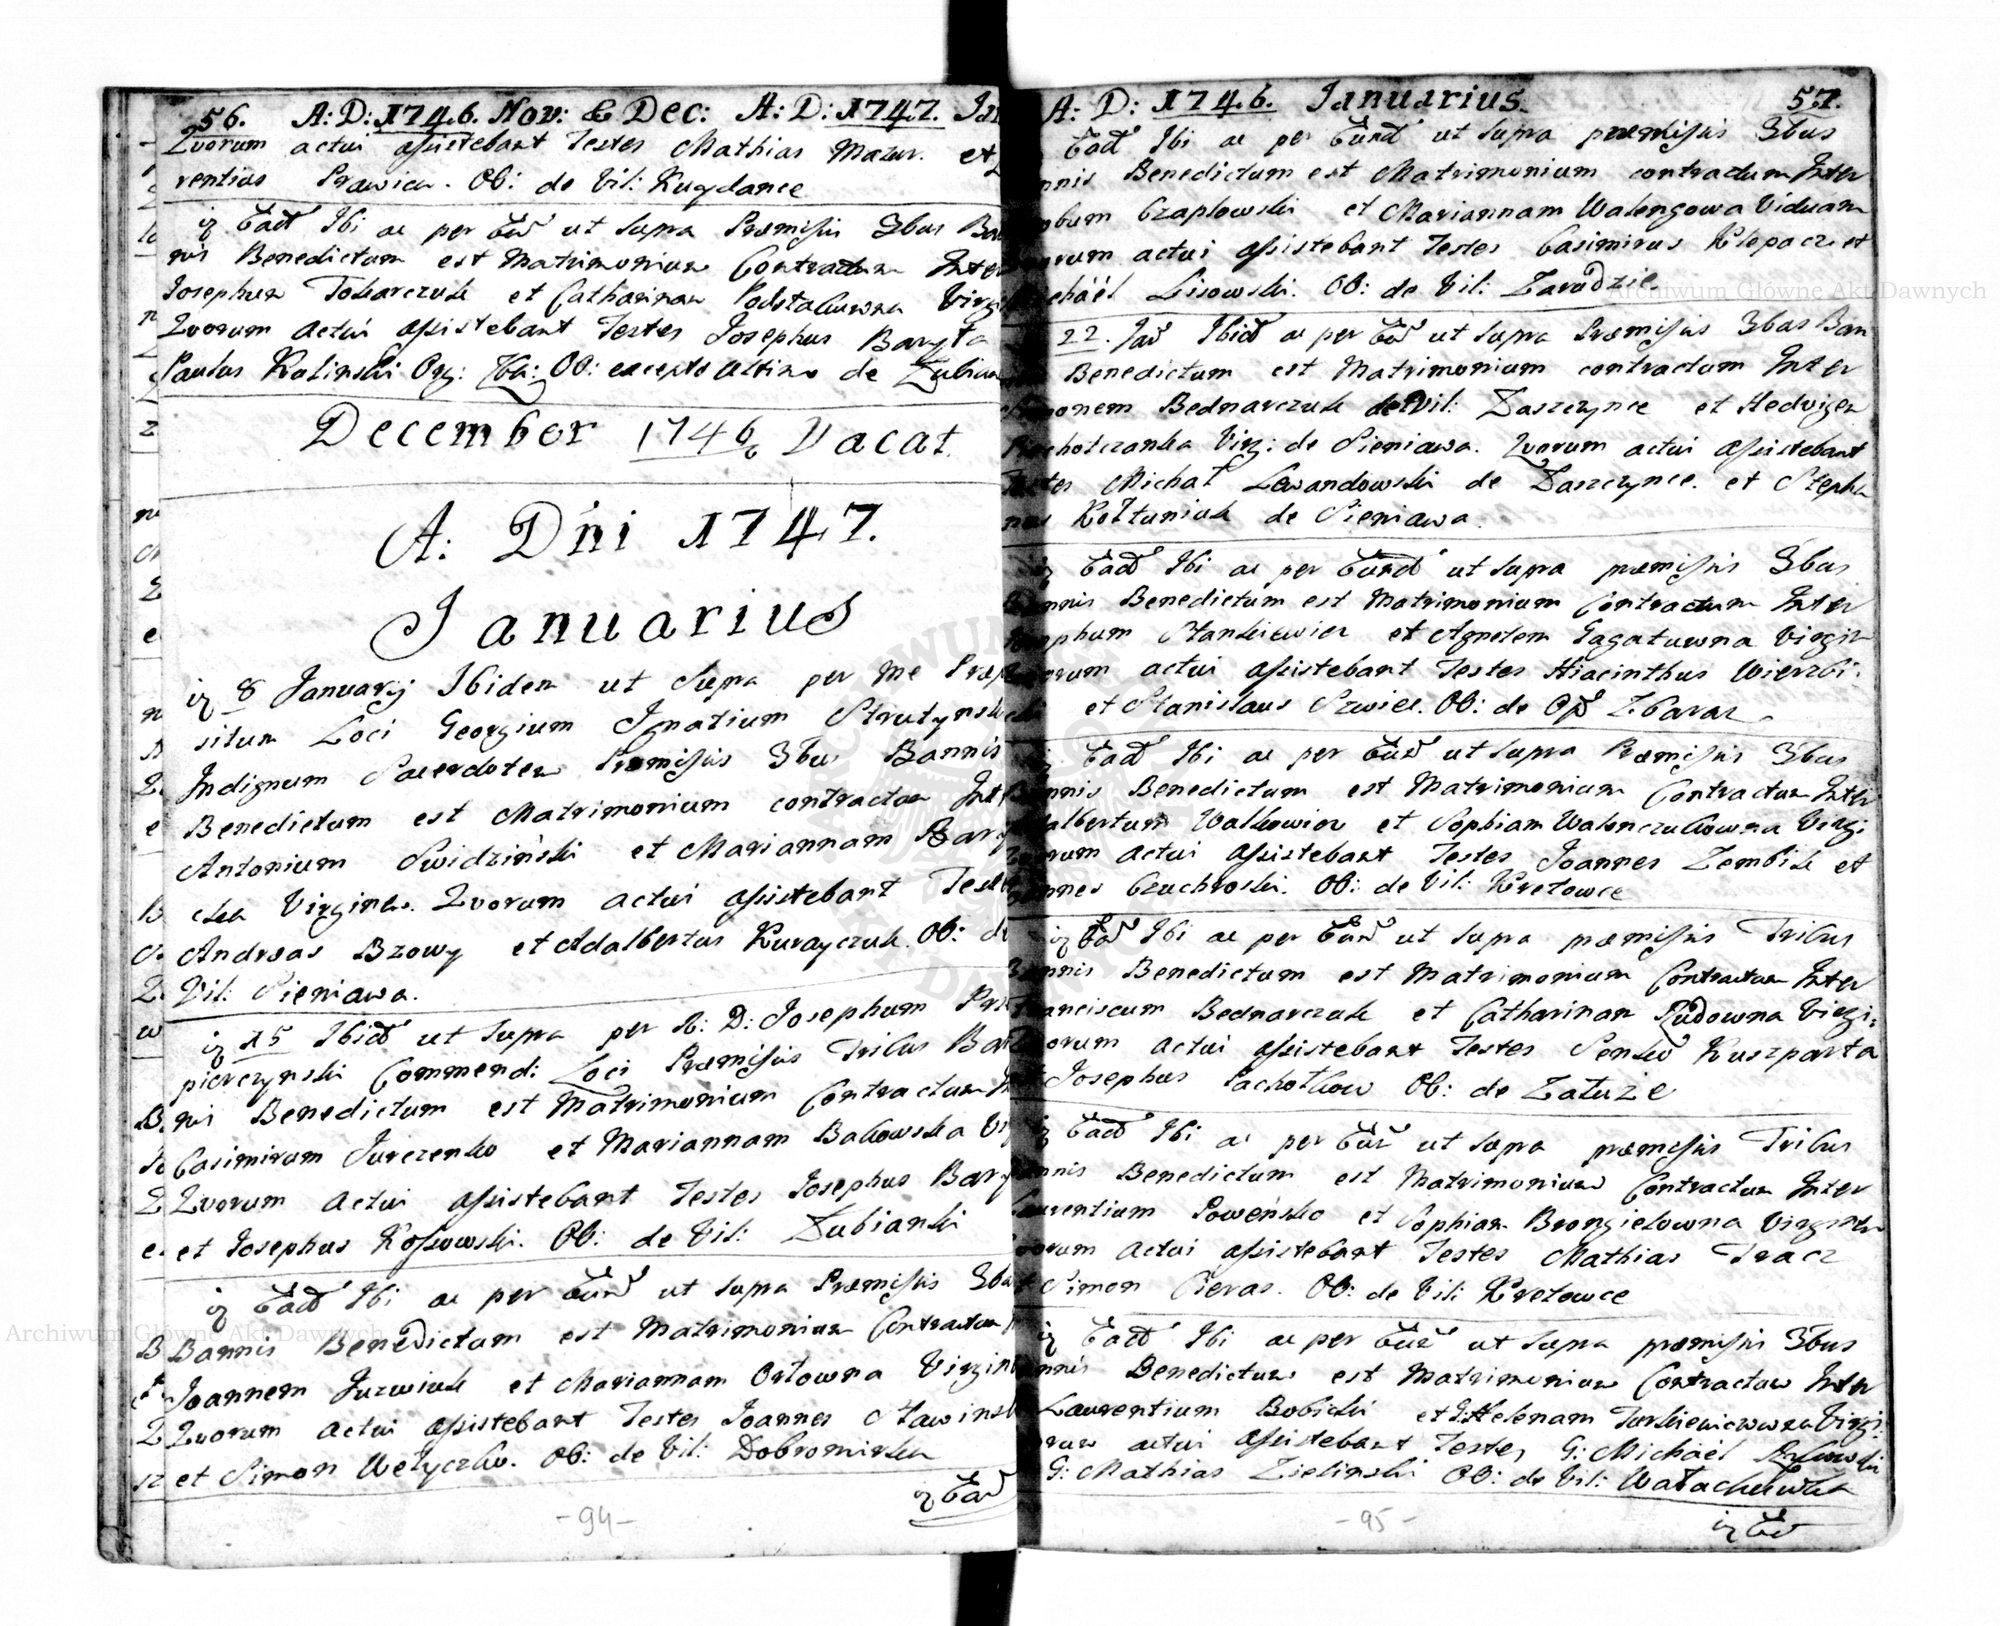 56. A: D: 1746. Nov: & Dec: A: D: 1747. Jan
Quorum actui assistebant Testes Mathias Mazur. et
rentius Prawica. OO: de Vil: Kuydance
Ead Ibi ac per Eud ut supra Praemissis 3bus Ban
nis Benedictum est Matrimonium Contractum Inter
Josephum Tokarczuk et Catharinam Virgi
Quorum actui assistebant Testes Josephus Baryta
Paulus Kalinski Org: OO: excepto ultimo de
December 1746 Vacat
A: Dni 1747.
Januarius
8 January Ibidem ut Supra per Me Præpo
situm Loci Georgium Ignatium Strutynski
Indignum Sacerdotem Præmissis 3bus Bannis
Benedictum est Matrimonium contractum Inter
Antonium Swidziński et Mariannam Bary
cka Virginem. Quorum actui assistebant Testes
Andreas Bzowy et Adalbertus Kurayczuk. OO: de
Vil: Sieniawa.
15 Ibid ut supra per R: D: Josephum Prz
pierczynski Commend: Loci Præmissis Tribus Ban
nis Benedictum est Matrimonium Contractum
Casimirum Jurczenko et Mariannam Bakowska Vi
Quorum actui assistebant Testes Josephus Bary
et Josephus Kossowski. OO: de Vil: Lubianki
Ead Ibi ac per Eund ut supra Præmissis 3bus
Bannis Benedictum est Matrimonium Contractum
Joannem Juzwiuk et Mariannam Orłowna Virgin
Quorum actui assistebant Testes Joannes Sławinsk
et Simon Wełyczko. OO: de Vil: Dobromirka
Ead
-94-
A: D: 1746. Januarius. 57.
Ead Ibi ac per Eund ut supra præmissis 3bus
nnis Benedictum est Matrimonium contractum Inter
obum Czapłowski et Mariannam Walengowa Viduam
orum actui assistebant Testes Casimirus Klepacz et
chaël Lisowski. OO: de Vil: Zarudzie.
22. Jan Ibid ac per Eud ut supra Præmissis 3bus Ban
Benedictum est Matrimonium contractum Inter
Simonem Bednarczuk de Vil: Zaszczynce et Hedvigem
chotczanka Virg: de Sieniawa. Quorum actui assistebant
Testes Michał Lewandowski de Zaszczynce. et Stepha
nus Kołtuniuk de Sieniawa.
Ead Ibi ac per Eund ut supra præmissis 3bus
Bannis Benedictum est Matrimonium Contractum Inter
Josephum Stankiewicz et Agnetem Gagatuwna Virgin
Quorum actui assistebant Testes Hiacinthus Wierzbi
cki et Stanislaus Szwiec. OO: de Opp Zbaraz
Ead Ibi ac per Eund ut supra Præmissis 3bus
Bannis Benedictum est Matrimonium Contractum Inter
dalbertum Walkowicz et Sophiam Walenczukowna Virgi
Quorum actui assistebant Testes Joannes Zembik et
Joannes Czuchroski. OO: de Vil: Kretowce
Ead Ibi ac per Eund ut supra præmissis Tribus
Bannis Benedictum est Matrimonium Contractum Inter
Franciscum Bednarczuk et Catharinam Rudowna Virgi:
Quorum actui assistebant Testes Senko Kuszparta
et Josephus Pachołkow OO: de Załuże
Ead Ibi ac per Eund ut supra præmissis Tribus
Bannis Benedictum est Matrimonium Contractum Inter
Laurentium Poweńsko et Sophiam Brongielowna Virginem
Quorum actui assistebant Testes Mathias Tracz
et Simon Cieras. OO: de Vil: Kretowce
Ead Ibi ac per Eund ut supra præmissis 3bus
nnis Benedictum est Matrimonium Contractum Inter
Laurentium Bobicki et Helenam Turkiewiczowna Virgi:
orum actui assistebant Testes G: Michaël
G: Mathias Zielinski OO: de Vil: Wałachuwka
-95-
Archiwum Główne Akt Dawnych
Archiwum Główne Akt Dawnych